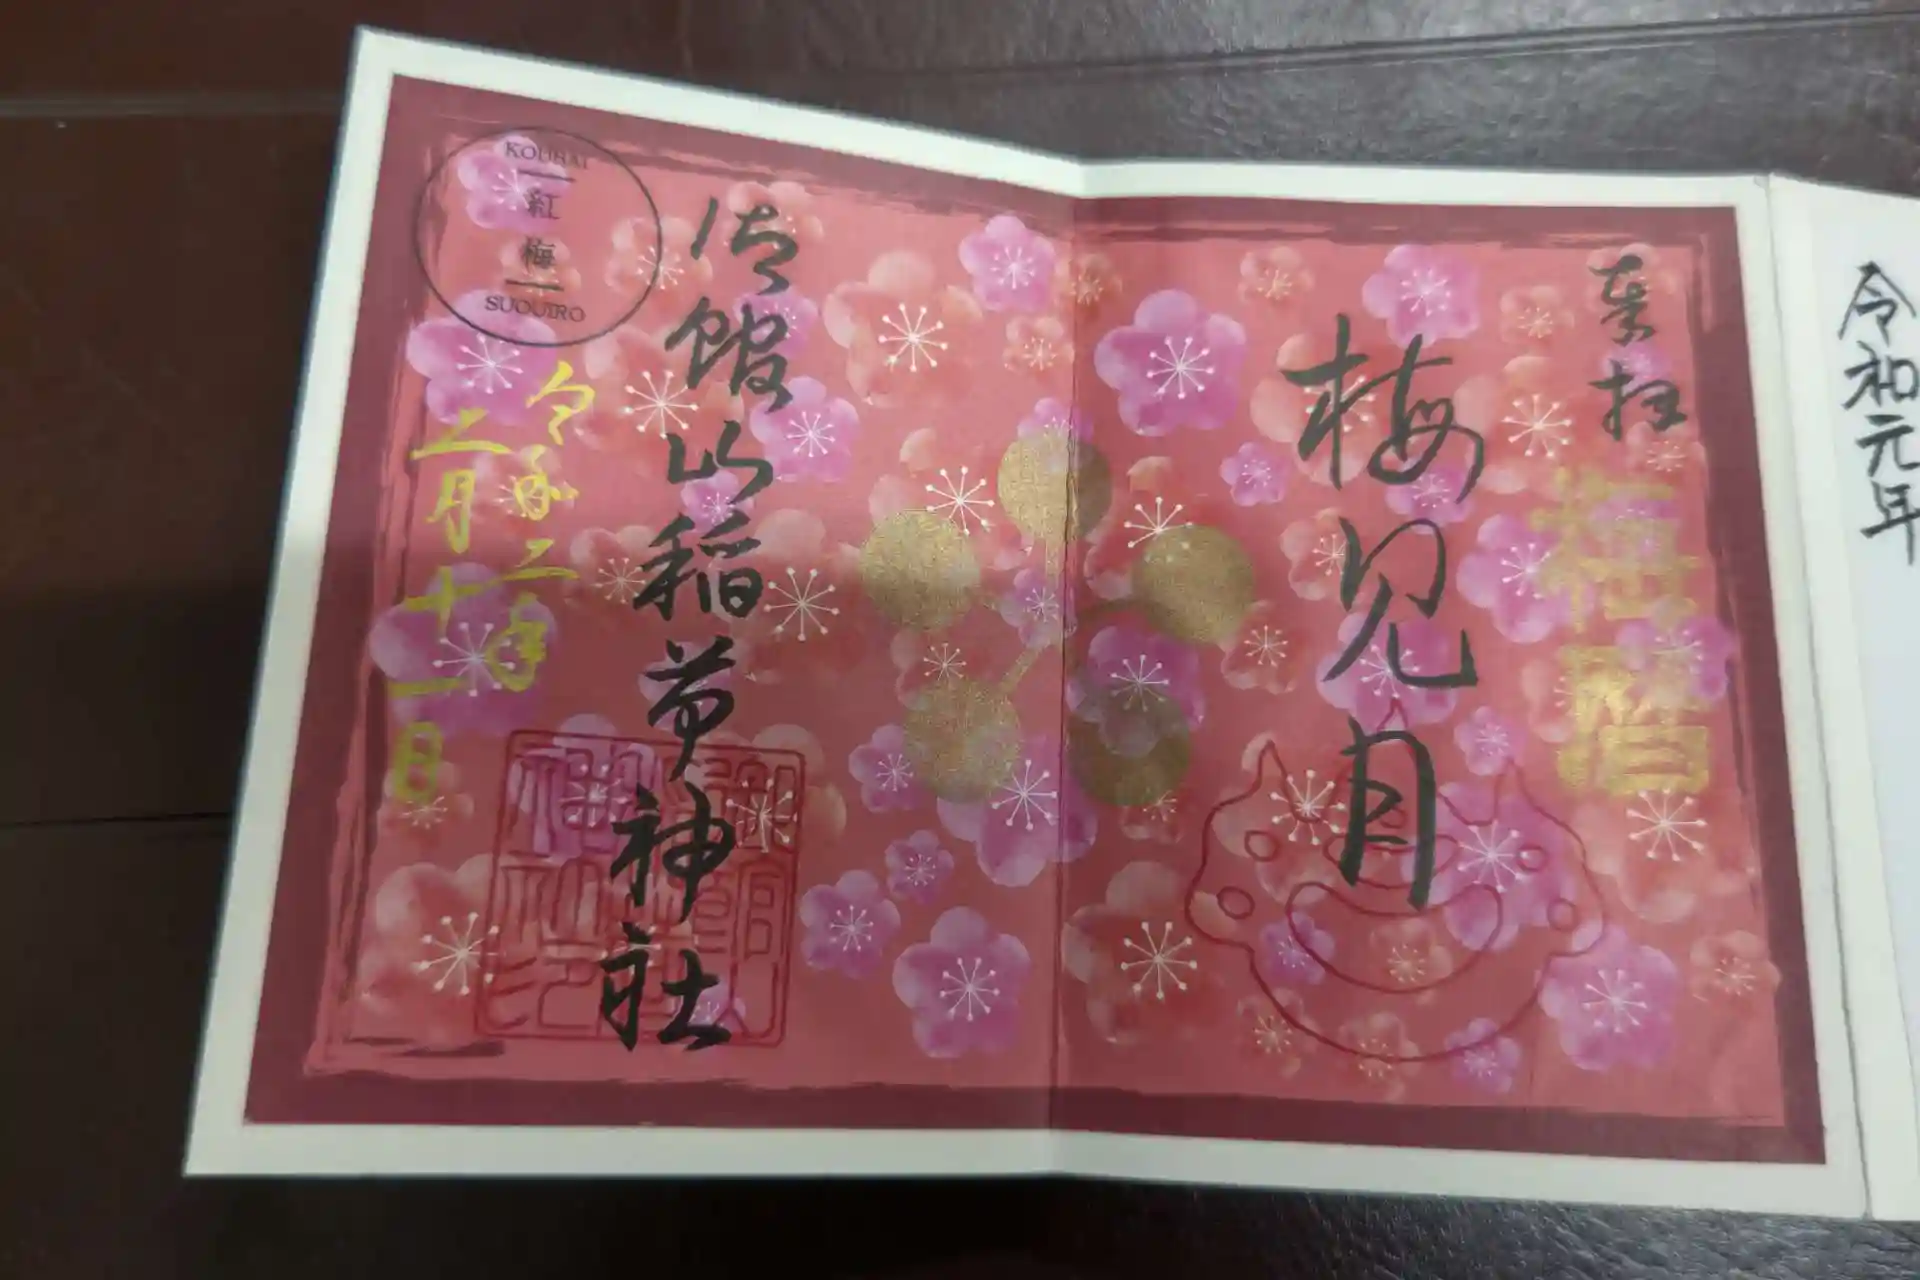 令和元年
奉拝
梅暦
梅見月
御館山稲荷神社
令和二年
二月十一日
KOUBAI
紅梅
SUOUIRO